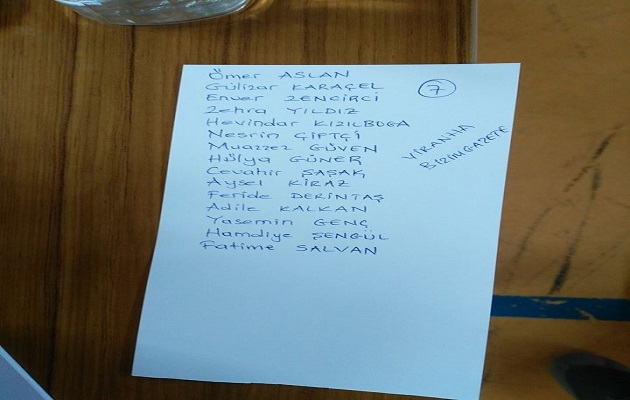 Ömer ASLAN
Gülizar KARAÇEL
Enver ZENCİRCİ
Zehra YILDIZ
Hevindar KIZILBOGA
Nesrin ÇİFTÇİ
Muazzez GÜVEN
Hülya GÜNER
Cevahir ŞAŞAK
Aysel KİRAZ
Feride DERİNTAŞ
Adile KALKAN
Yasemin GENÇ
Hamdiye ŞENGÜL
Fatime SALVAN
7
VİRANHA
BİZİMGAZETE